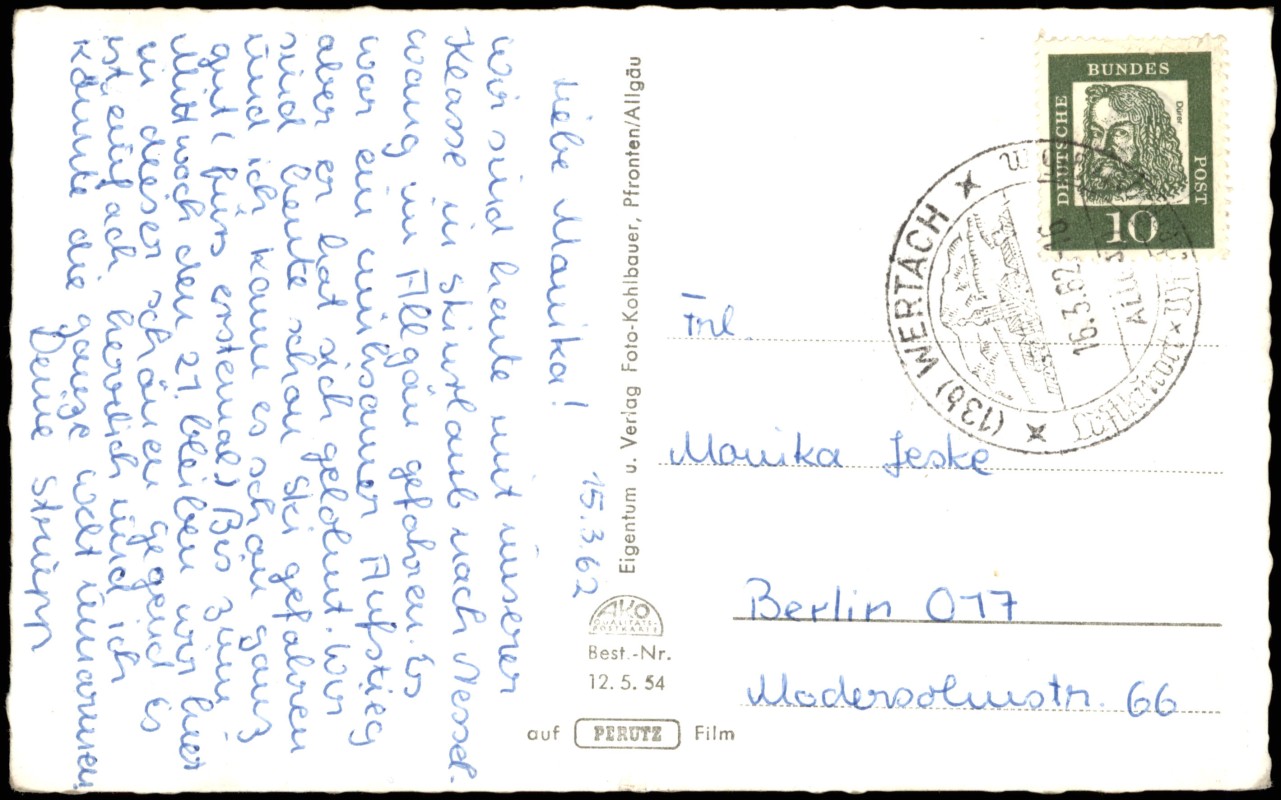 15.3.62
Liebe Monika!
Wir sind heute mit unserer
Klasse in Skiurlaub nach Nessel-
wang im Allgäu gefahren. Es
war ein mühsamer Aufstieg
aber er hat sich gelohnt. Wir
sind heute schon Ski gefahren
und ich kann es schon ganz
gut (fürs erstemal) Bis zum
Mittwoch den 21. bleiben wir hier
in dieser schönen Gegend es
ist einfach herrlich und ich
könnte die ganze Welt umarmen
Deine Strupp
Eigentum u. Verlag Foto-Kohlbauer, Pfronten/Allgäu
AKO
QUALITÄTS-
POSTKARTE
Best.-Nr.
12. 5. 54
auf PERUTZ Film
DEUTSCHE
BUNDES
POST
Dürer
10
(13b) WERTACH
16.3.62-16
Luftkurort
Frl.
Monika Jeske
Berlin O17
Modersohnstr. 66